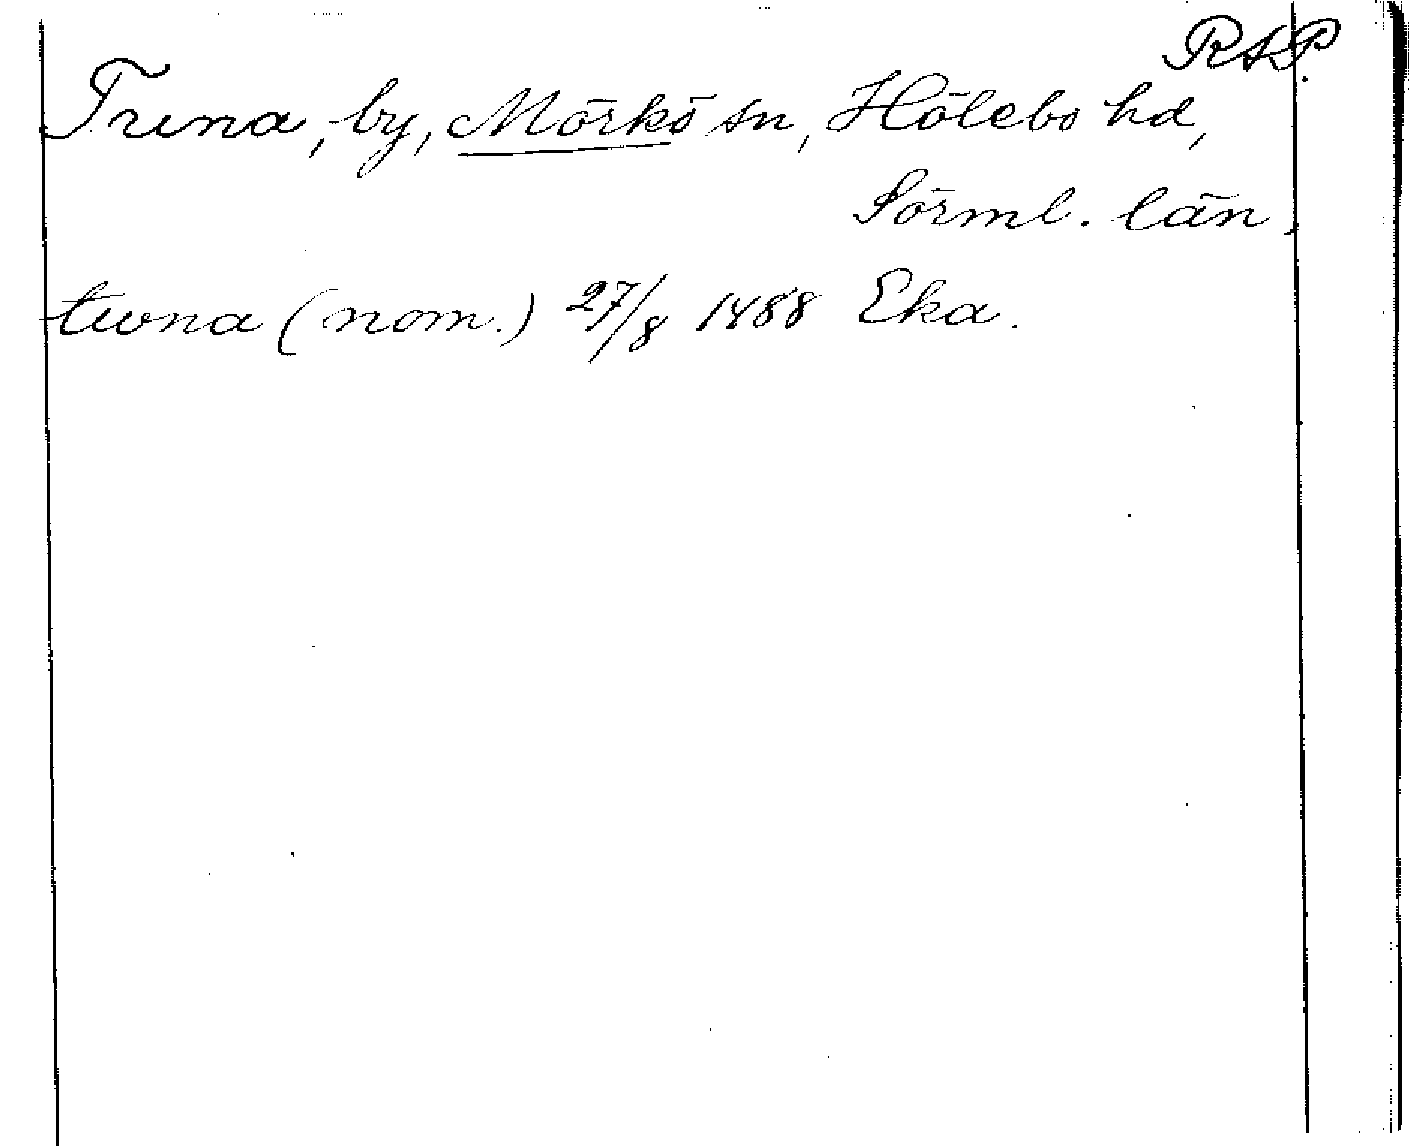 RAP.
Truna, by, Mörkö sn, Hölebo hd,
Sörml. län.
twna (nom.) 27/8 1488 Eka.